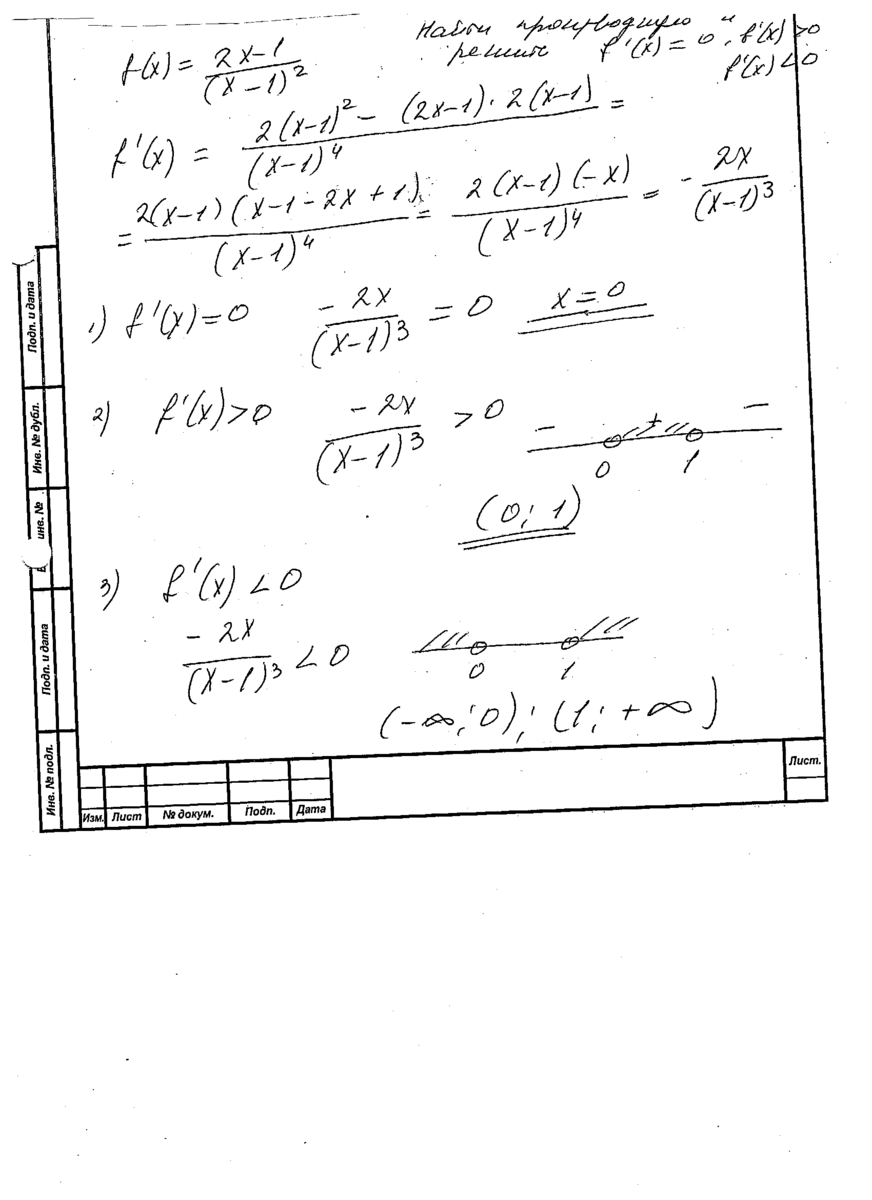 Найти производную и
решить f'(x) = 0, f'(x) > 0
f'(x) < 0
f(x) = (2x-1)/(x-1)²
f'(x) = (2(x-1)² - (2x-1)·2(x-1))/(x-1)⁴ =
= (2(x-1)(x-1-2x+1))/(x-1)⁴ = (2(x-1)(-x))/(x-1)⁴ = - 2x/(x-1)³
1) f'(x) = 0 (-2x)/(x-1)³ = 0 x = 0
2) f'(x) > 0 (-2x)/(x-1)³ > 0 - + -
0 1
(0; 1)
3) f'(x) < 0
(-2x)/(x-1)³ < 0
0 1
(-∞; 0); (1; +∞)
Подп. и дата
Инв. № дубл.
инв. №
Подп. и дата
Инв. № подл.
Лист.
Изм. Лист № докум. Подп. Дата